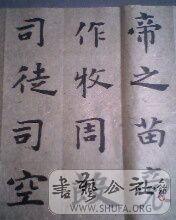 帝之苗
作牧周
司徒司空
書藝公社
WWW.SHUFA.ORG